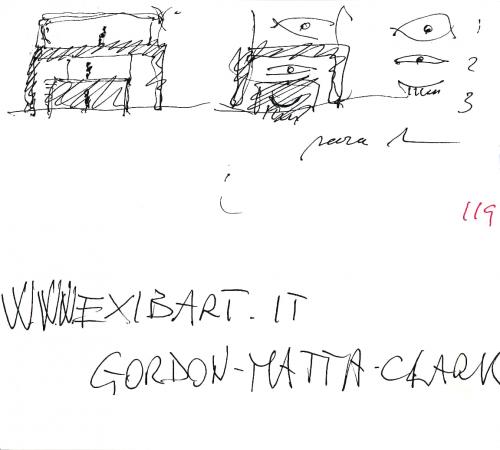 1
2
3
119
WWW EXIBART. IT
GORDON-MATTA-CLARK